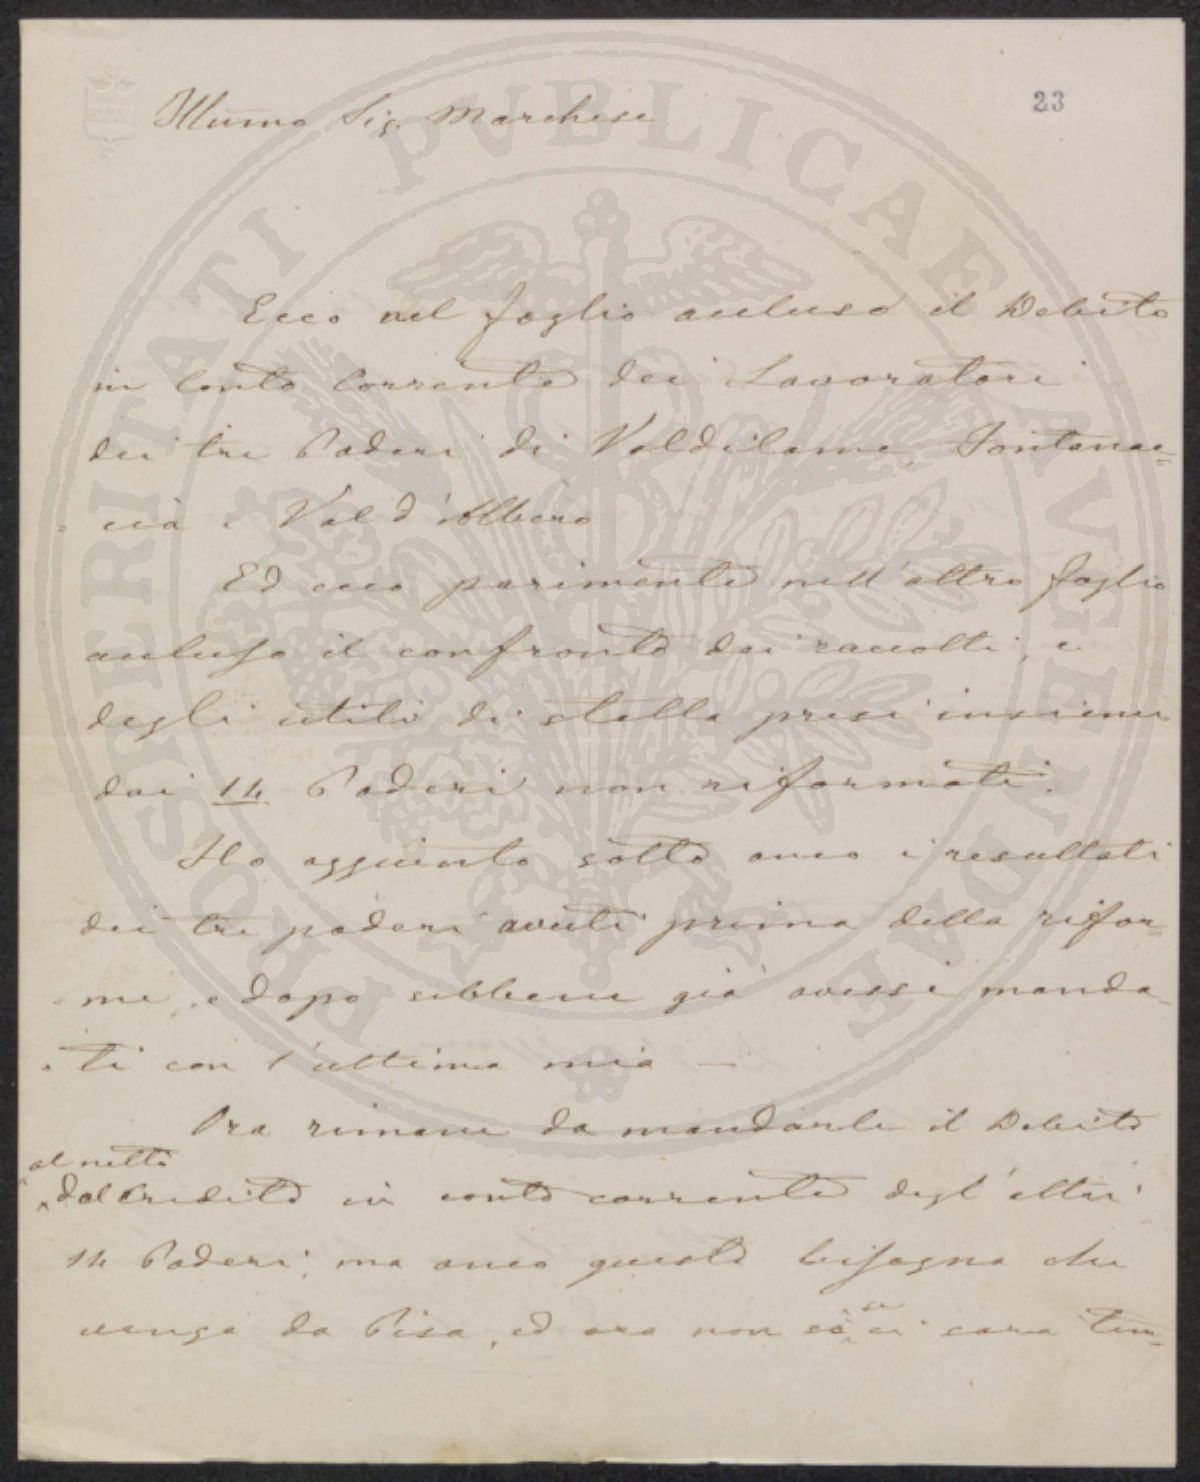 23
Illumo Sig. Marchese
Ecco nel foglio accluso il Debito
in Conto Corrente dei Lavoratori
dei tre Poderi di Valdilame, Fontanac=
=cia e Val d'Albero
Ed ecco parimente nell'altro foglio
accluso il confronto dei raccolti, e
degli utili di stalla presi insieme
dai 14 Poderi non riformati.
Ho aggiunto sotto anco i resultati
dei tre poderi avuti prima della rifor=
=me, e dopo sebbene già avessi manda=
=ti con l'ultima mia —
Ora rimane da mandarle il Debito
al netto
dal Credito in conto corrente degl'altri
14 Poderi, ma anco questo bisogna che
venga da Pisa, ed ora non so se ci sarà tem=
PROSPERITATI PVBLICAE AVGENDAE